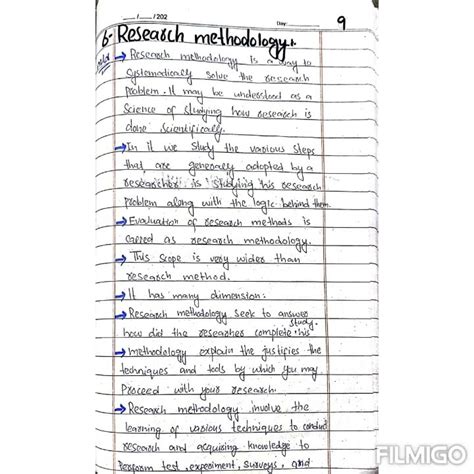 __/__/202
Day:
9
6- Research methodology.
→ Research methodology is a way to
systematically solve the research
problem. It may be understood as a
Science of studying how research is
done scientifically.
→ In it we study the various steps
that are generally adopted by a
researcher is studying his research
problem along with the logic behind them
→ Evaluation of research methods is
called as research methodology.
→ This scope is very wider than
research method.
→ It has many dimension:
→ Research methodology seek to answer
how did the researcher complete his study.
→ methodology explain the justifies the
techniques and tools by which you may
proceed with your research.
→ Research methodology involve the
learning of various techniques to conduct
research and acquising knowledge to
perform test, experiment, surveys, and
FILMIGO